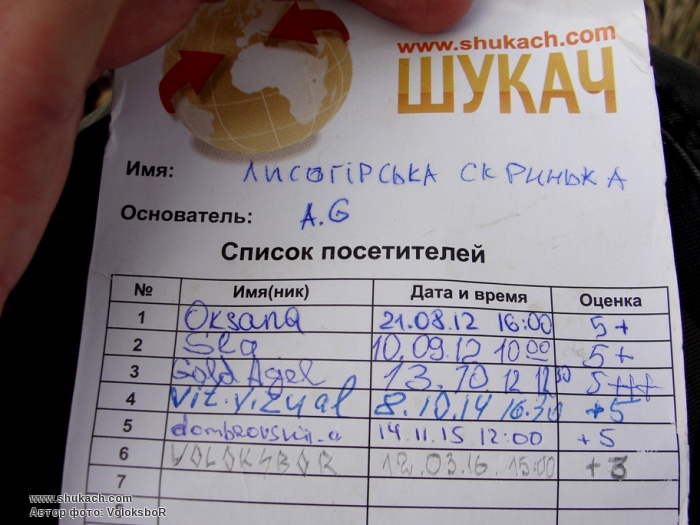 www.shukach.com
ШУКАЧ
Имя: ЛИСОГІРСЬКА СКРИНЬКА
Основатель: A.G
Список посетителей
№ Имя(ник) Дата и время Оценка
1 Oksana 21.08.12 16:00 5+
2 Seg 10.09.12 10 00 5+
3 Gold Agel 13.10.12 12 30 5+++
4 vit.vizual 8.10.14 16.30 +5
5 dombrovskii-a 14.11.15 12:00 +5
6 VOLOKSBOR 12.03.16. 15:00 +3
7
www.shukach.com
Автор фото: VoloksboR